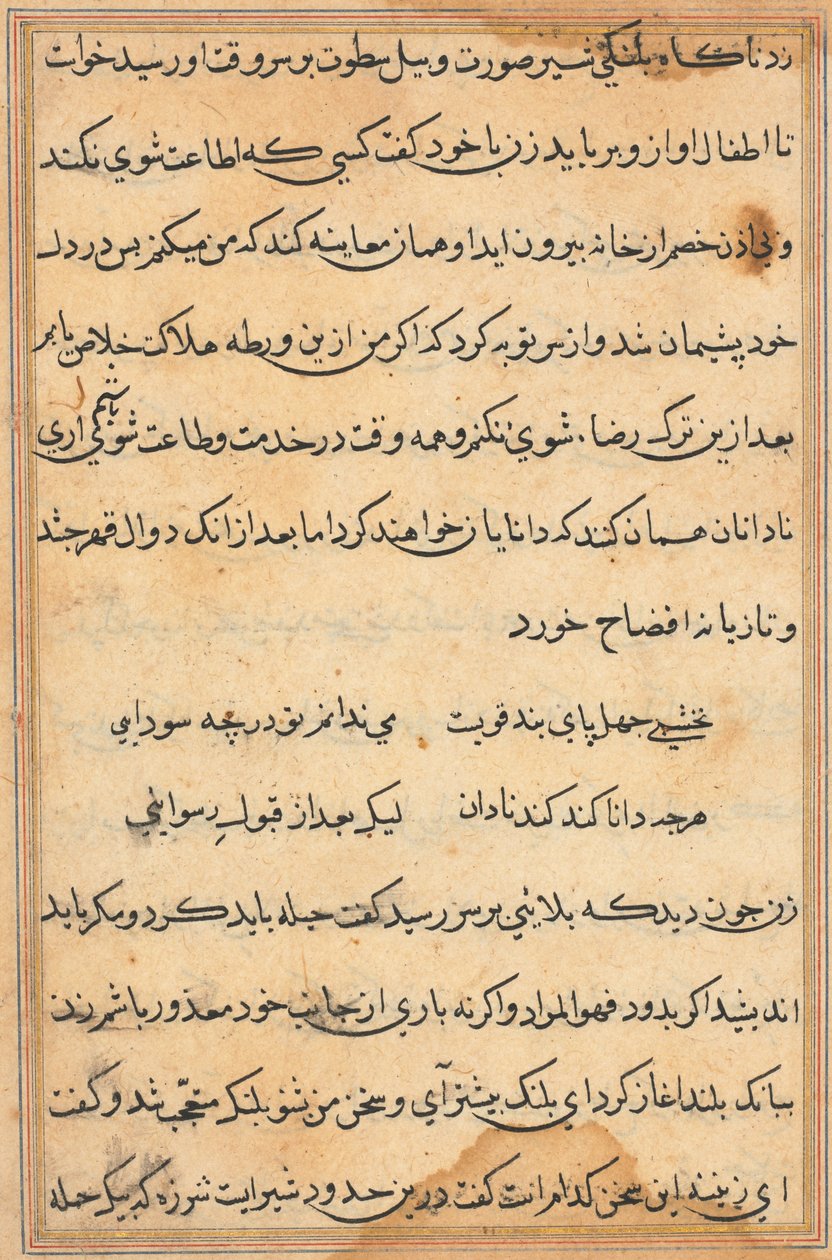 زد ناکاه بلنکي شیر صورت و بیل سطوت بر سر وقت او رسید خواست
تا اطفال او از و برباید زن با خود کفت کسي که اطاعت شوي نکند
و بي اذن خصم از خانه بیرون اید او همان معاینه کند که من میکنم بس در دل
خود پشیمان شد و از سر توبه کرد که اکر من ازین ورطه هلاکت خلاص یابم
بعد ازین ترک رضاء شوئ نکنم و همه وقت در خدمت و طاعت شوئي باشم اري
نادانان همان کنند که دانایان خواهند کرد اما بعد از انک دوال قهر جشد
و تازیانه افضاح خورد
نخشبي جهل پاي بند قویست مي ندانم تو در چه سودایي
هرچه دانا کند کند نادان لیک بعد از قبولِ رسوایئي
زن جون دید که بلائیي بر سر رسید کفت حیله باید کرد و مکر باید
اندیشید اکر بدود فهو المراد و اکر نه باري از جانب خود معذور باشم زن
ببانک بلند اغاز کرد اي بلنک بیشتر آي و سخن من بشنو بلنک متعجّب شد و کفت
اي زنینه این سخن کدام است کفت درین حدود شیر ایست شرزه که بیک حمله